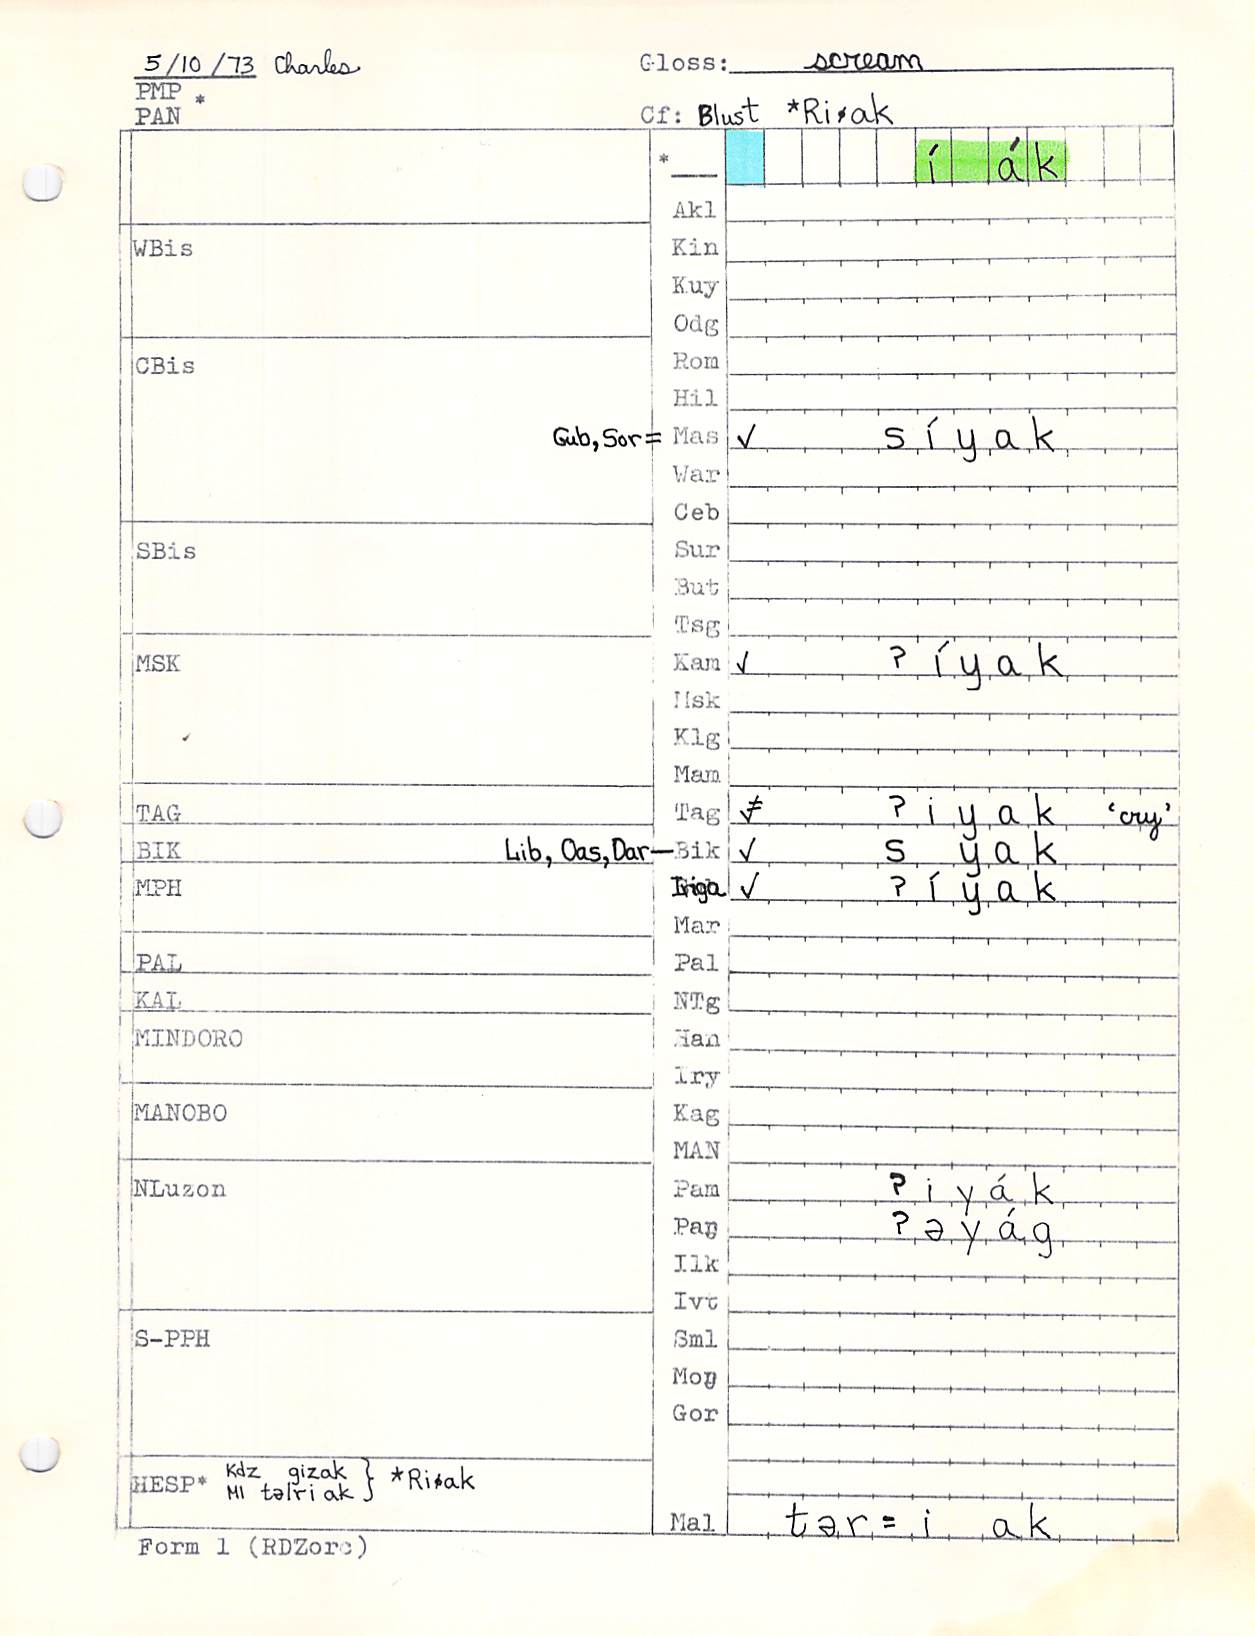 5/10/73 Charles Gloss: scream
PMP
PAN * Cf: Blust *Riɸak
* í ák
Akl
WBis Kin
Kuy
Odg
CBis Rom
Hil
Gub, Sor = Mas ✓ síyak
War
Ceb
SBis Sur
But
Tsg
MSK Kam ✓ ʔíyak
Msk
Klg
Mam
TAG Tag ≠ ʔiyak ‘cry’
BIK Lib, Oas, Dar — Bik ✓ s yak
MPH Iriga ✓ ʔíyak
Mar
PAL Pal
KAL NTg
MINDORO Han
Iry
MANOBO Kag
MAN
NLuzon Pam ʔiyák
Paŋ ʔəyág
Ilk
Ivt
S-PPH Sml
Moŋ
Gor
HESP* Kdz gizak } *Riɸak
Ml təlriak
Mal tər=i ak
Form 1 (RDZorc)